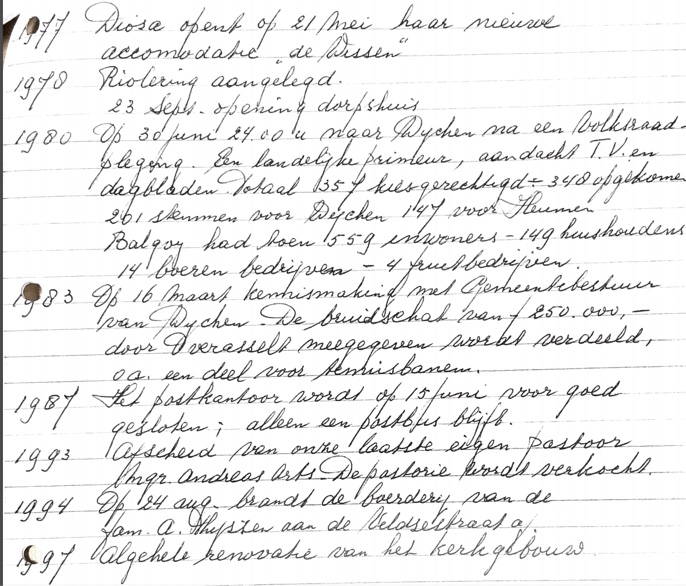 1977 Diosa opent op 21 mei haar nieuwe
accomodatie „de Dissen“
1978 Riolering aangelegd.
23 Sept. opening dorpshuis
1980 Op 30 juni 24.00 u naar Wychen na een Volksraad-
pleging. Een landelijke primeur, aandacht T.V. en
dagbladen. Totaal 357 kiesgerechtigd = 348 opgekomen
201 stemmen voor Wychen 147 voor Heumen
Balgoy had toen 559 inwoners - 149 huishoudens
14 boeren bedrijven - 4 fruitbedrijven.
1983 Op 16 maart kennismaking met Gemeentebestuur
van Wychen. De bruidschat van f 250.000,-
door Overasselt meegegeven wordt verdeeld,
o a. een deel voor tennisbanen.
1987 Het postkantoor wordt op 15 juni voor goed
gesloten; alleen een postbus blijft.
1993 Afscheid van onze laatste eigen pastoor
Mgr. Andreas Arts. De pastorie wordt verkocht.
1994 Op 24 aug. brandt de boerderij van de
fam. A. Thijssen aan de Veldsestraat af.
1997 Algehele renovatie van het kerkgebouw.